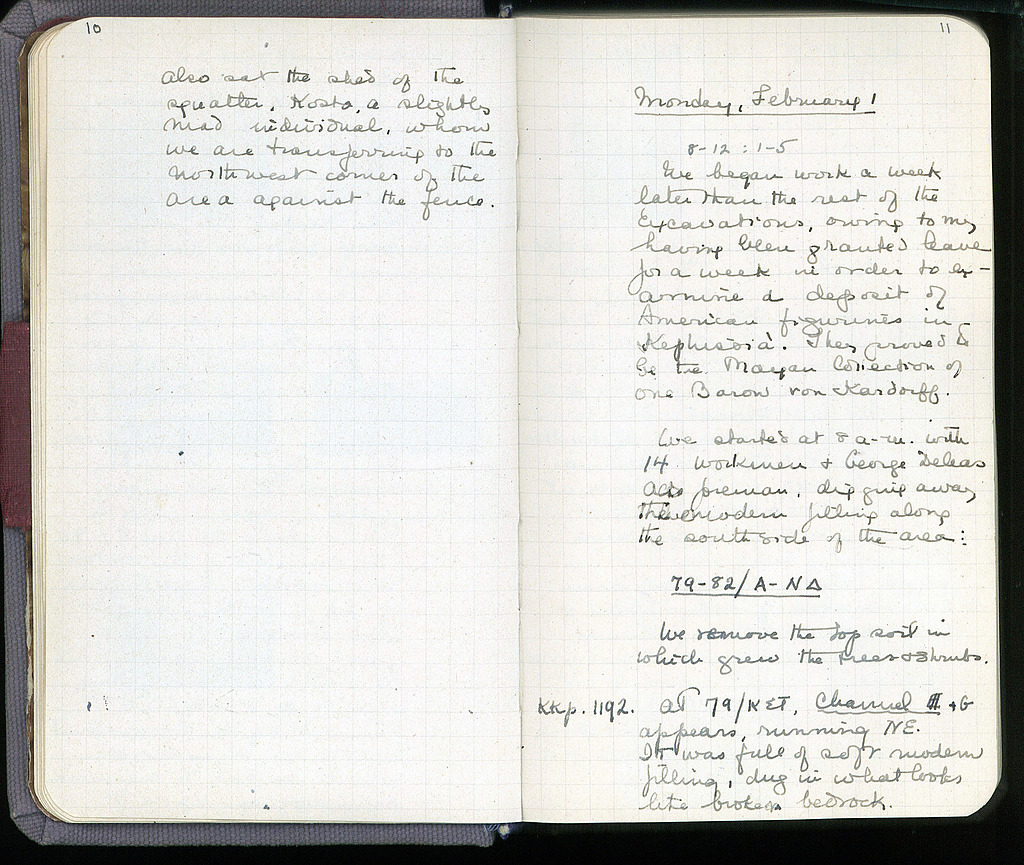 10
also sat the shed of the
squatter, Kosta, a slightly
mad individual, whom
we are transferring to the
northwest corner of the
area against the fence.
11
Monday, February 1
8-12 : 1-5
We began work a week
later than the rest of the
Excavations, owing to my
having been granted leave
for a week in order to ex-
amine a deposit of
American figurines in
Kephissia. They proved to
be the Mayan Collection of
one Baron von Kardorff.
We started at 8 a-m. with
14 workmen + George Deleas
as foreman, digging away
the modern filling along
the south side of the area:
79-82/A-NΔ
We remove the top soil in
which grew the trees + shrubs.
KKp. 1192. at 79/KET, Channel + G
appears, running NE.
It was full of soft modern
filling, dug in what looks
like broken bedrock.